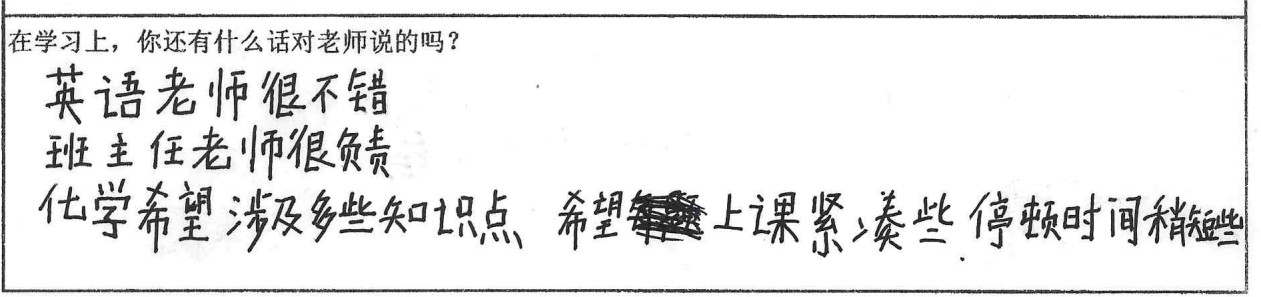 在学习上，你还有什么话对老师说的吗？
英语老师很不错
班主任老师很负责
化学希望涉及多些知识点、希望上课紧凑些.停顿时间稍短些